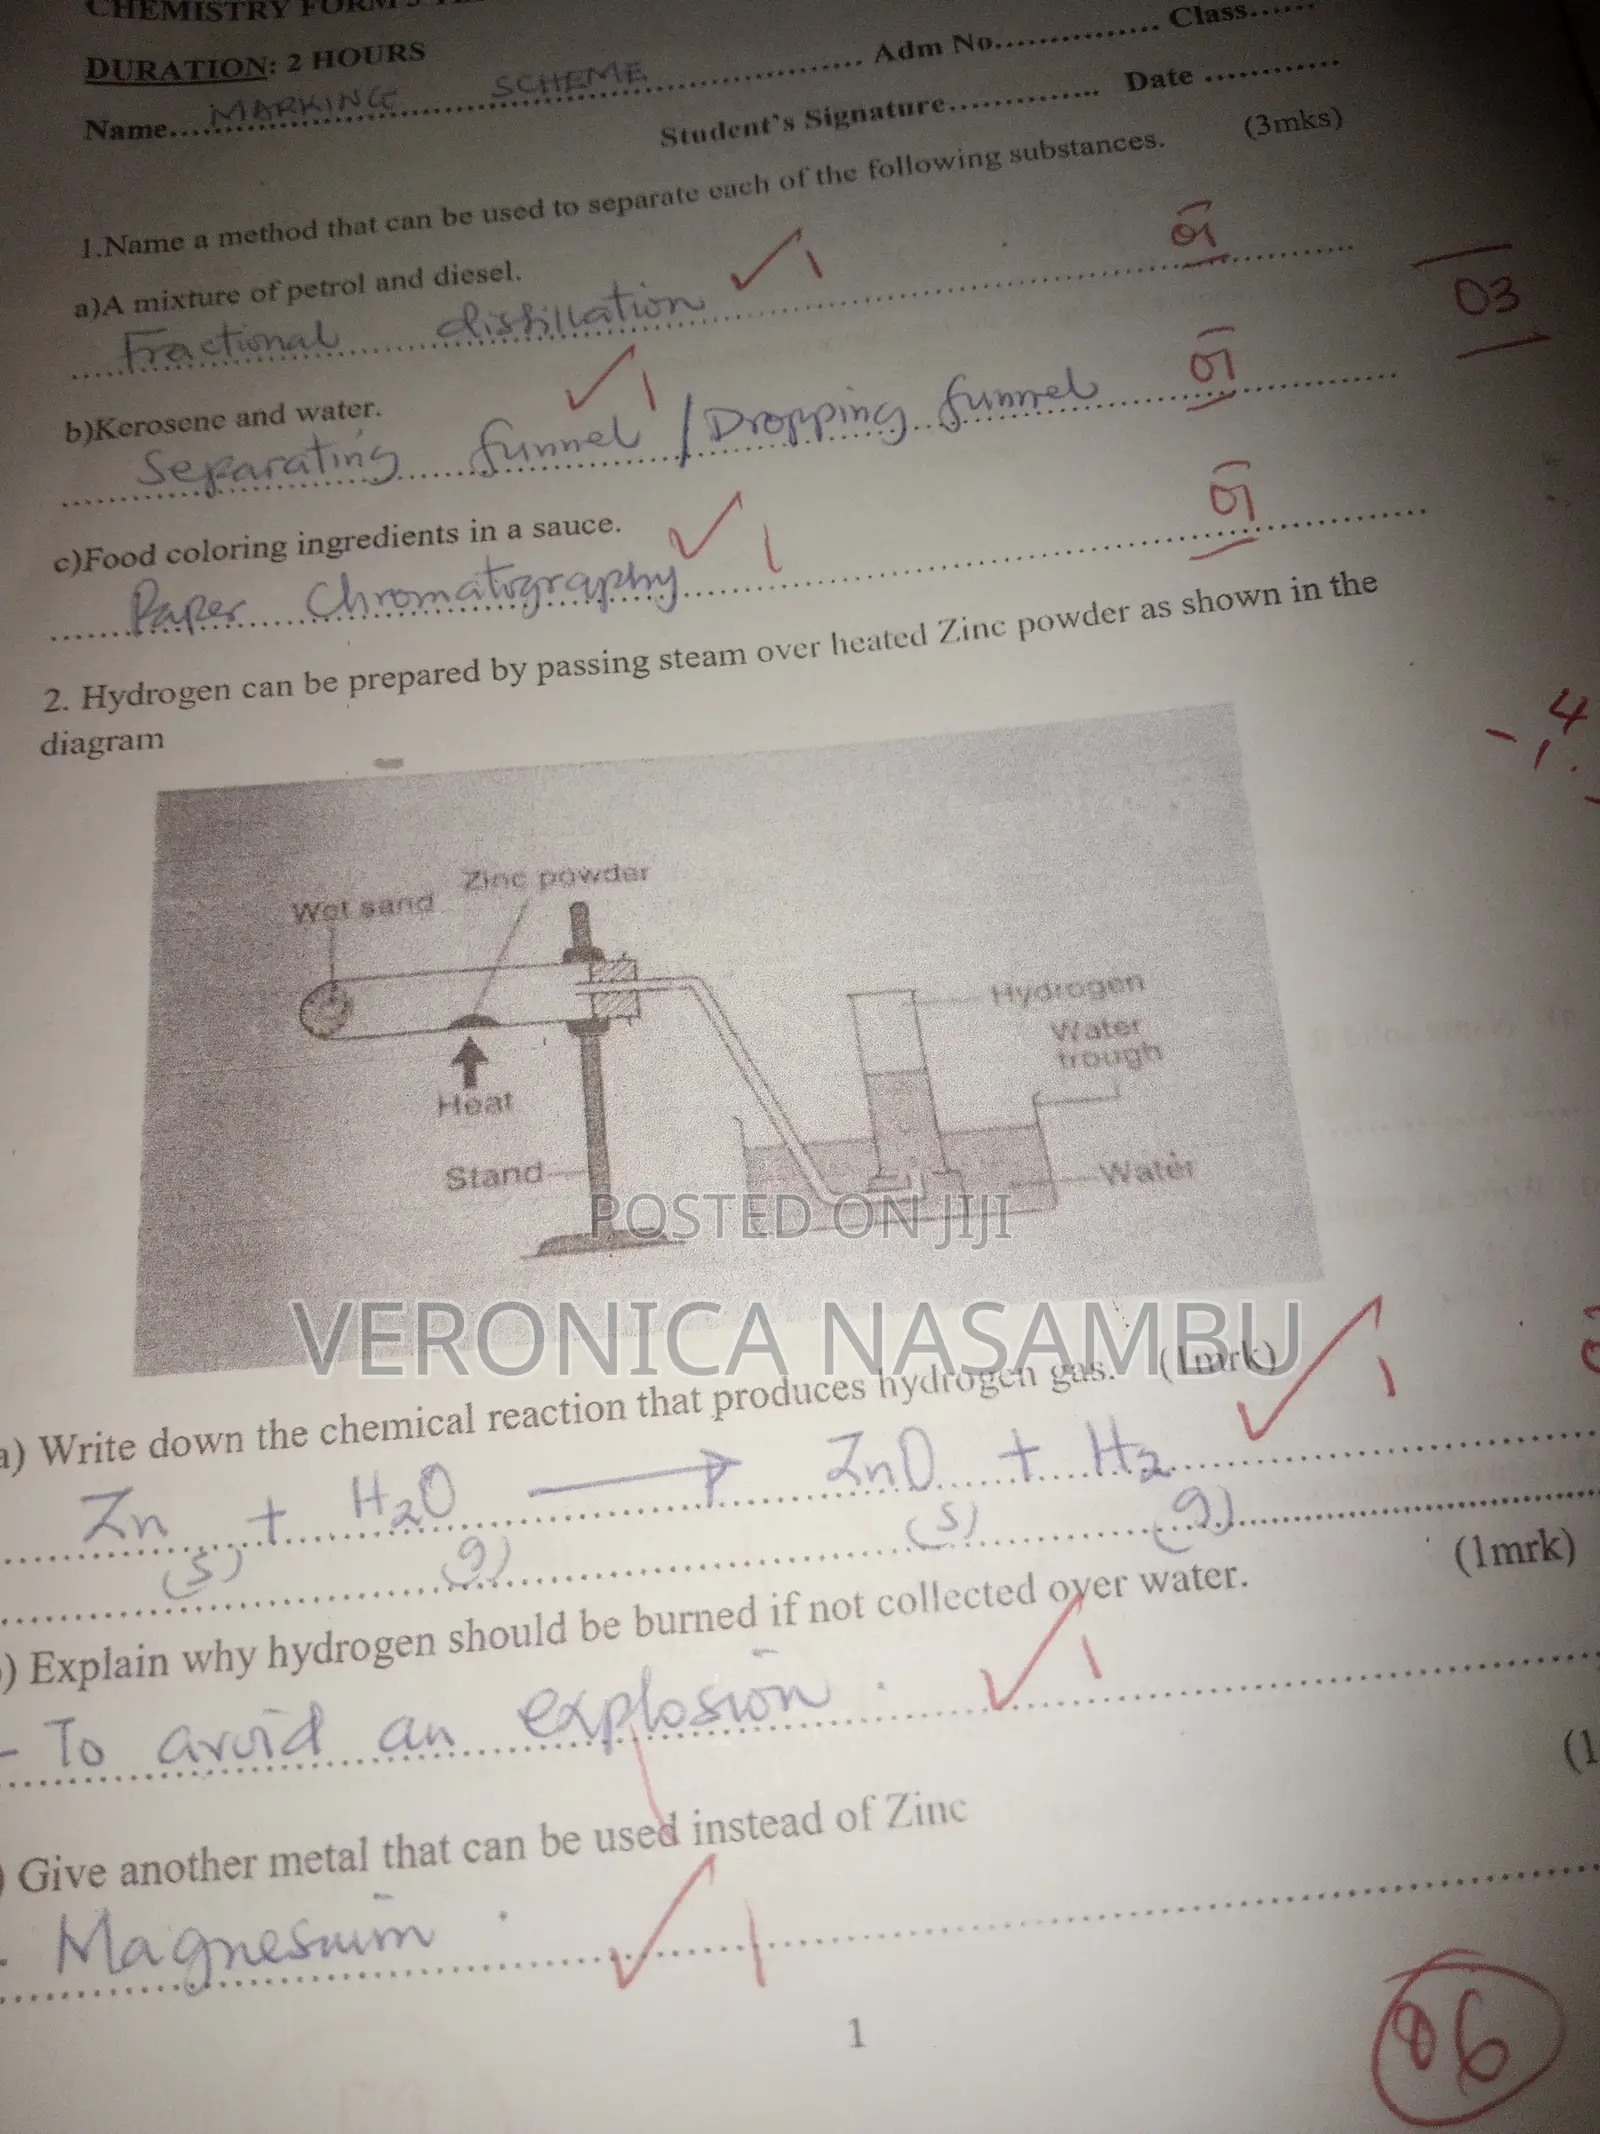 CHEMISTRY FORM 3
DURATION: 2 HOURS
Name MARKING SCHEME Adm No. Class
Student's Signature Date
1.Name a method that can be used to separate each of the following substances. (3mks)
a)A mixture of petrol and diesel. 01
Fractional distillation ✓1
03
b)Kerosene and water. 01
Separating funnel / Dropping funnel ✓1
c)Food coloring ingredients in a sauce. 01
Paper Chromatography ✓1
2. Hydrogen can be prepared by passing steam over heated Zinc powder as shown in the
diagram
Wet sand Zinc powder
Hydrogen
Water
trough
Heat
Stand
Water
POSTED ON JIJI
VERONICA NASAMBU
a) Write down the chemical reaction that produces hydrogen gas. (1mrk) ✓1
Zn + H2O → ZnO + H2
(s) (g) (s) (g)
) Explain why hydrogen should be burned if not collected over water. (1mrk)
- To avoid an explosion. ✓1
) Give another metal that can be used instead of Zinc (1
- Magnesium. ✓1
1
06